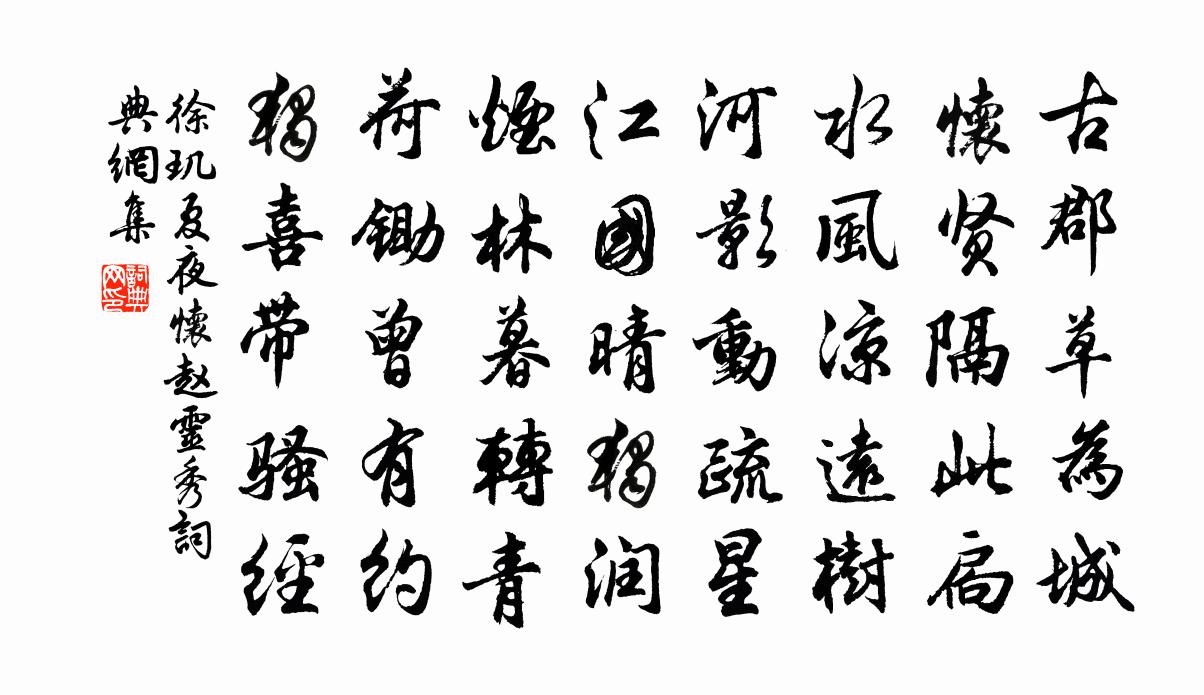 古郡草為城
懷贤隔此扃
水風凉遠樹
河影動疏星
江國晴獨润
煙林暮轉青
荷锄曾有约
獨喜带骚經
徐玑夏夜懷赵靈秀詞
典網集
詞典
网印